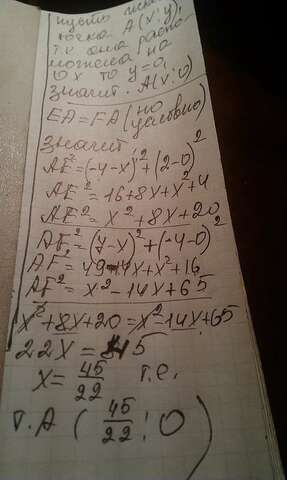 пусть иском
точка A(x;y),
т.к. она распо-
ложена на
Ox то y=0,
значит. A(x;0)
EA=FA (по
условию)
значит
AE²=(-4-x)²+(2-0)²
AE²=16+8x+x²+4
AE²=x²+8x+20
AF²=(7-x)²+(-4-0)²
AF²=49-14x+x²+16
AF²=x²-14x+65
x²+8x+20=x²-14x+65
22x=45
x=45/22 т.е.
т.A(45/22;0)